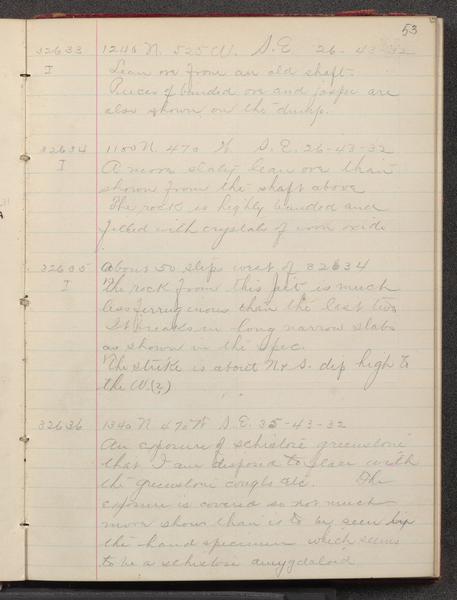 53
32633 1240 N. 525 W. S.E. 26-43-32
I Lean ore from an old shaft.
Pieces of banded ore and jasper are
also shown on the dump.
32634 1100 N. 470 W. S.E. 26-43-32
I A more slaty lean ore than
shown from the shaft above
The rock is highly banded and
filled with crystals of iron oxide
32635 About 50 steps west of 32634
I The rock from this pit is much
less ferruginous than the last two
It breaks in long narrow slabs
as shown in the spec.
The strike is about N & S. dip high to
the W. (?)
32636 1340 N. 475 W. S.E. 35-43-32
An exposure of schistose greenstone
that I am disposed to place with
the greenstone congls etc. The
exposure is covered so not much
more shows than is to be seen by
the hand specimen which seems
to be a schistose amygdaloid